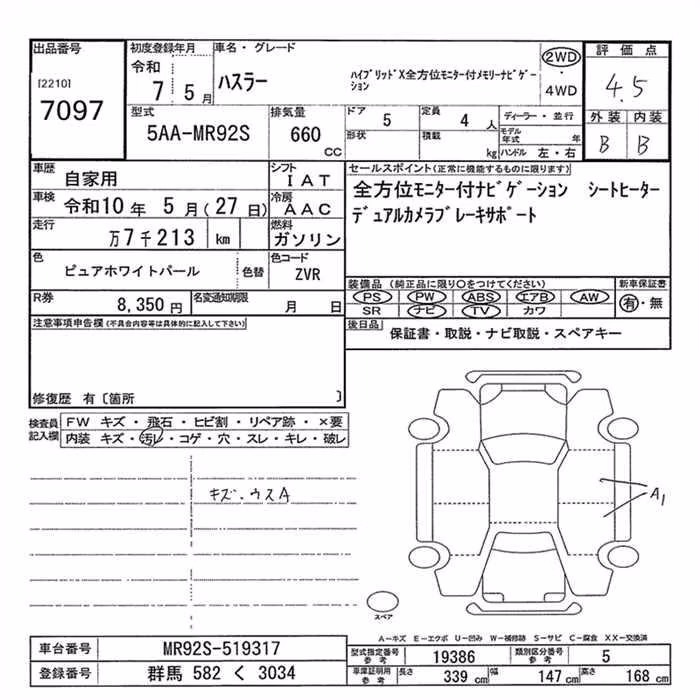 出品番号
[2210]
7097
初度登録年月
令和
7 5 月
車名・グレード
ハスラー
ハイブリッドX全方位モニター付メモリーナビゲーション
2WD
・
4WD
評価点
4.5
外装 内装
B B
型式
5AA-MR92S
排気量
660
cc
ドア 5
定員 4 人
ディーラー・並行
形状
積載 kg
モデル年式 年
ハンドル 左・右
車歴
自家用
シフト
IAT
車検
令和10年 5月(27日)
冷房
AAC
走行
万7千213 km
燃料
ガソリン
色
ピュアホワイトパール
色替
色コード
ZVR
R券
8,350 円
名変通知期限
月 日
セールスポイント(正常に機能するものに限ります)
全方位モニター付ナビゲーション シートヒーター
デュアルカメラブレーキサポート
装備品 (純正品に限り○をつけてください)
新車保証書
PS PW ABS エアB AW
SR ナビ TV カワ
有・無
後日品
保証書・取説・ナビ取説・スペアキー
注意事項申告欄(不具合内容等は具体的に記入して下さい)
修復歴 有〔箇所 〕
検査員記入欄
FW キズ・飛石・ヒビ割・リペア跡・×要
内装 キズ・汚レ・コゲ・穴・スレ・キレ・破レ
キズ・ウスA
A1
スペア
A-キズ E-エクボ U-凹み W-補修跡 S-サビ C-腐食 XX-交換済
車台番号
MR92S-519317
登録番号
群馬 582 く 3034
型式指定番号
参考
19386
類別区分番号
参考
5
車庫証明用
参考
長さ 339 cm
幅 147 cm
高さ 168 cm